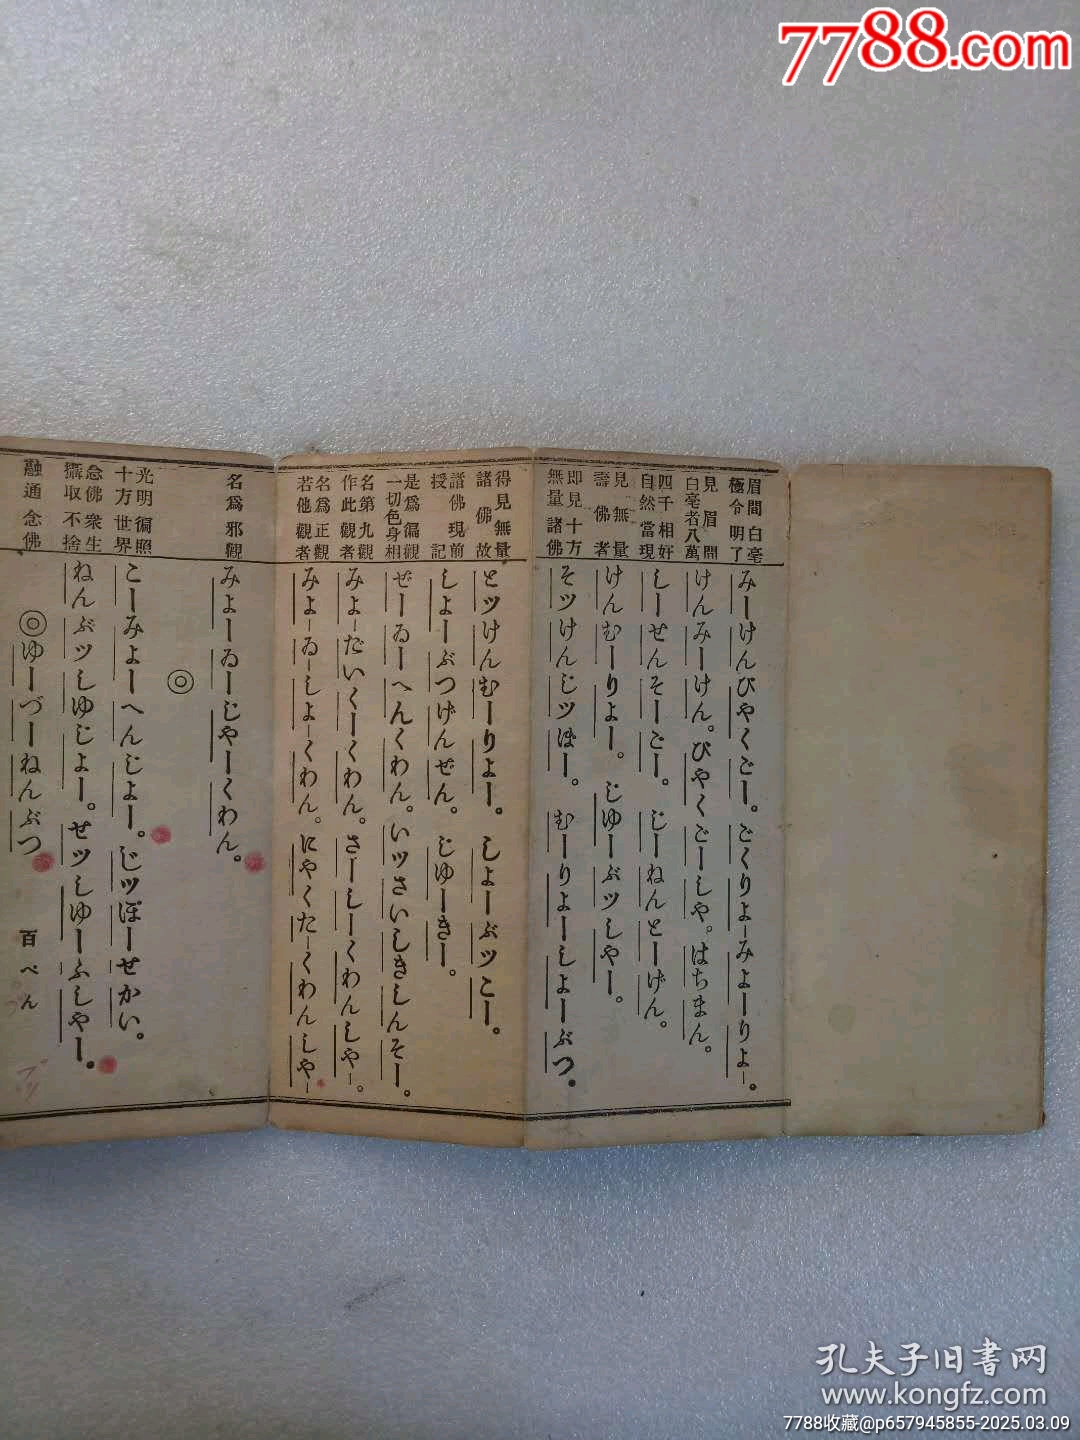 7788.com
眉間白毫
極令明了
みーけんびやくごー。ごくりよーみよーりよー。
見眉間
白毫者八萬
けんみーけん。びやくごーしや。はちまん。
四千相好
自然當現
しーせんそーごー。じーねんとーげん。
見無量
壽佛者
けんむーりよー。じゆーぶツしやー。
即見十方
無量諸佛
そツけんじツぽー。むーりよーしよーぶつ。
得見無量
諸佛故
とツけんむーりよー。しよーぶツこー。
諸佛現前
授記
しよーぶつげんぜん。じゆーきー。
是爲徧觀
一切色身相
ぜーゐーへんくわん。いツさいしきしんそー。
名第九觀
作此觀者
みよーだいくーくわん。さーしーくわんしやー。
名爲正觀
若他觀者
みよーゐーしよーくわん。にやくたーくわんしやー
名爲邪觀
みよーゐーじやーくわん。
◎
光明徧照
十方世界
こーみよーへんじよー。じツぽーせかい。
念佛衆生
攝取不捨
ねんぶツしゆじよー。せツしゆーふしやー。
融通念佛
◎ゆーづーねんぶつ 百ぺん
孔夫子旧書网
www.kongfz.com
7788收藏@p657945855-2025.03.09